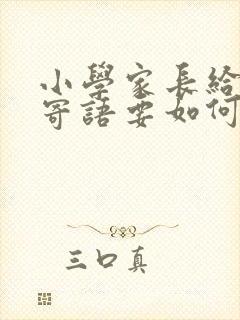 小學家長給
寄語要如何
三口真